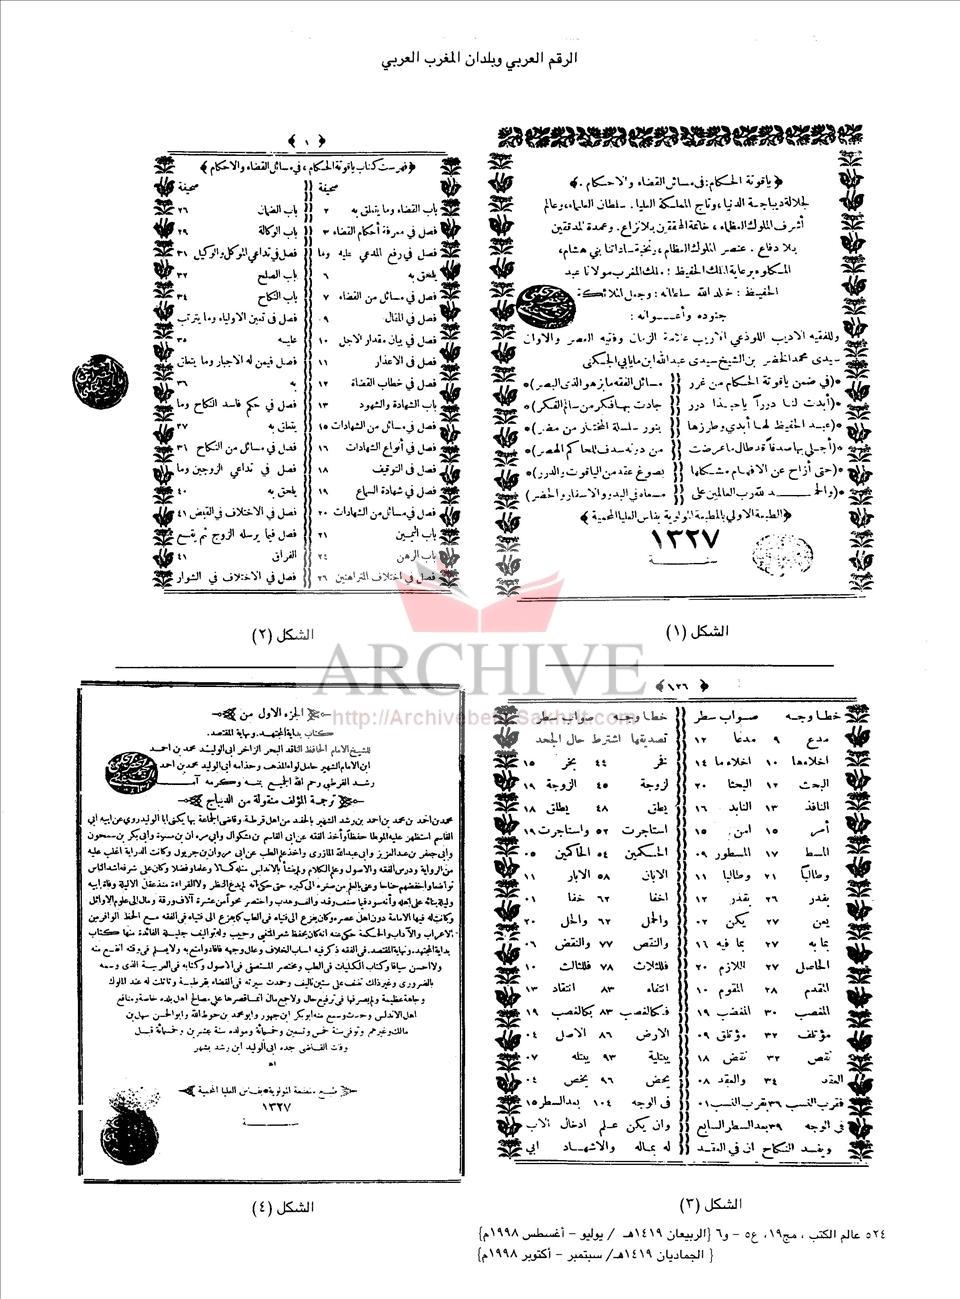 الرقم العربي وبلدان المغرب العربي
﴿ياقوتة الحكام: فى مسائل القضاء والاحكام.﴾
لجلالة ديباجة الدنيا، وتاج المملكة العليا. سلطان العلماء، وعالم
أشرف الملوك العظماء، خاتمة المحققين بلانزاع. وعمدة المدققين
بلا دفاع. عنصر الملوك العظام، ونخبة ساداتنا بني هشام،
المكلوء برعاية الملك الحفيظ: ملك المغرب مولانا عبد
الحفيظ: خلد الله سلطانه: وجعل الملائكة
جنوده وأعـــوانه:
وللفقيه الاديب اللوذعي الاريب علامة الزمان وفقيه العصر والاوان
سيدى محمد الخضر بن الشيخ سيدى عبدالله ابن مايابى الجكنى
(في ضمن ياقوتة الحكام من غرر مسائل الفقه ما يزهو لذى البصر)
(أبدت لنا درراً ياحبذا درر جادت بها فكر من سالم الفكر)
(عبد الحفيظ لها أبدي وطرزها بنور سلسلة المختار من مضر)
(حتى أزاح عن الافهام مشكلها بصوغ عقد من الياقوت والدرر)
﴿الطبعة الاولي بالمطبعة المولوية بفاس العليا المحمية﴾
١٣٢٧
الشكل (١)
﴿ ١ ﴾
﴿فهرست كتاب ياقوتة الحكام، في مسائل القضاء والاحكام﴾
صحيفة
باب القضاء وما يتعلق به ٢
فصل في معرفة أحكام القضاء ٣
فصل في رفع المدعي عليه وما
يلحق به ٦
فصل في مسائل من القضاء ٧
فصل في المقال ٩
فصل في بيان مقدار الاجل ١٠
فصل في الاعذار ١١
فصل في خطاب القضاة ١٢
باب الشهادة والشهود ١٣
فصل في مسائل من الشهادات ١٥
فصل في أنواع الشهادات ١٦
فصل في التوقيف ١٨
فصل في شهادة السماع ١٩
فصل في مسائل من الشهادات ٢٠
باب اليمين ٢١
باب الرهن ٢٤
فصل في اختلاف المتراهنين ٢٦
صحيفة
باب الضمان ٢٦
باب الوكالة ٢٩
فصل في تداعي الموكل والوكيل ٣١
باب الصلح ٣٢
باب النكاح ٣٤
فصل في تعين الاولياء وما يترتب
عليـه ٣٥
فصل فيمن له الاجبار وما يتعلق
به ٣٦
فصل في حكم فاسد النكاح وما
يتعلق به ٣٧
فصل في مسائل من النكاح ٣١
فصل في تداعي الزوجين وما
يلحق به ٤٠
فصل في الاختلاف في القبض ٤١
فصل فيما يرسله الزوج ثم يقع
الفراق ٤١
فصل في الاختلاف في الشوار
الشكل (٢)
﴿ ١٢٦ ﴾
خطا وجه صواب سطر
مدع ٩ مدعا ١٢
اخلاءها ١٠ اخلاء ما ١٤
البحث ١٢ البحثا ٢٠
النافذ ١٣ النابد ١٦
أمر ١٥ امن ١٥
المسط ١٧ المسطور ٠٩
وطالباً ٢١ وطالبا ١١
بقدر ٢٦ بقدر ١٢
يعن ٢٧ يكن ٠٢
بما به ٢٧ بما فيه ١٦
الحاصل ٢٧ اللازم ٢٠
المقدم ٢٨ المقوم ١٠
المغصب ٣٠ المغضب ١٩
مؤتلف ٣٢ مؤتلق ٠٩
نقص ٣٢ نقض ١٨
العقد ٣٤ والعقد ٠٨
فقرب النسب ٣٦ بقرب النسب ٠١
فى الوجه ٣٩ بعد السطر السابع
وبفسد النكاح ان في العقد
خطا وجه صواب سطر
تصديقها اشترط حال الجحد
فخر ٤٤ بخر ١٥
لزوجة ٤٥ الزوجة ١٩
يطق ٤٨ يطلق ١٨
استاجرت ٥٢ واستاجرت ١٩
الحكمين ٥٤ الحاكمين ٠٥
الابان ٥٨ الابار ١١
اخفا ٦٢ خفا ٠١
والحمل ٦٢ والحال ٢٠
والنقص ٧٧ والنقض ٠٦
فللثلاث ٧٨ فللثالث ١٠
انتفاء ٨٣ انتقاد ١٣
فكالغصب ٨٣ بكالغصب ١٩
الارض ٨٦ الاصل ٠٤
يبتلية ٩٣ يبتله ٠٧
بحض ٩٦ بخص ٠٤
فى الوجه ١٠٤ بعد السطر ١٥
وان يكن علم ادخال الاب
له بماله والاشهاد ابي
الشكل (٣)
الجزء الاول من
كتاب بداية المجتهد. ونهاية المقتصد.
للشيخ الامام الحافظ الناقد البحر الزاخر أبى الوليد محمد بن احمد
ابن الامام الشهير حامل لواء المذهب وحذامه أبى الوليد محمد بن احمد
رشد القرطبي رحم الله الجميع بمنه وكرمه آمـ
ترجمة المؤلف منقولة من الديباج
محمد بن أحمد بن محمد بن احمد بن رشد الشهير بالحفيد من اهل قرطبة وقاضى الجماعة بها يكنى أبا الوليد روى عن ابيه أبى
القاسم استظهر عليه الموطا حفظا وأخذ الفقه عن ابى القاسم بن بشكوال وابى مروان بن مسرة وابى بكر بن سمحون
وابى جعفر بن عبد العزيز وابى عبد الله المازرى واخذ علم الطب عن ابى مروان بن جريول وكانت الدراية اغلب عليه
من الرواية ودرس الفقه والاصول وعلم الكلام ولم ينشأ بالاندلس مثله كمالا وعلما وفضلا وكان على شرفه أشد الناس
تواضعا واخفضهم جناحا وعنى بالعلم من صغره الى كبره حتى حكى أنه لم يدع النظر ولا القراءة منذ عقل الا ليلة وفاة ابيه
وليلة بنائه على اهله وأنه سود فيما صنف وقيد والف وهذب واختصر نحوا من عشرة آلاف ورقة ومال الى علوم الاوائل
وكانت له فيها الامامة دون اهل عصره وكان يفزع الى فتياه فى الطب كما يفزع الى فتياه فى الفقه مع الحظ الوافر من
الاعراب والآداب والحكمة حكى عنه انه كان يحفظ شعر المتنبى وحبيب وله تواليف جليلة الفائدة منها كتاب
بداية المجتهد. ونهاية المقتصد. فى الفقه ذكر فيه اسباب الخلاف وعلل وجهه فافاد وامتع به ولا يعلم فى وقته انفع منه
ولا احسن سياقا وكتاب الكليات فى الطب ومختصر المستصفى فى الاصول وكتابه فى العربية الذى وسمه
بالضرورى وغير ذلك تنيف على ستين تاليفا وحمدت سيرته فى القضاء بقرطبة وتاثلت له عند الملوك
وجاهة عظيمة ولم يصرفها فى ترفيع حال ولا جمع مال انما قصرها على مصالح اهل بلده خاصة ومنافع
اهل الاندلس وحدث وسمع منه ابو بكر ابن جهور وابو محمد بن حوط الله وابو الحسن سهل بن
مالك وغيرهم وتوفى سنة خمس وتسعين وخمسمائة ومولده سنة عشرين وخمسمائة قبـل
وفات القاضى جده ابى الوليد ابن رشد بشهر
اﻫ
طبع بمطبعة المولوية بفاس العليا المحمية
١٣٢٧
الشكل (٤)
ARCHIVE
http://Archivebeta.Sakhrit.com
٥٢٤ عالم الكتب ، مج١٩، ع٥ - و٦ {الربيعان ١٤١٩هـ / يوليو - أغسطس ١٩٩٨م}
{ الجماديان ١٤١٩هـ/ سبتمبر - أكتوبر ١٩٩٨م}